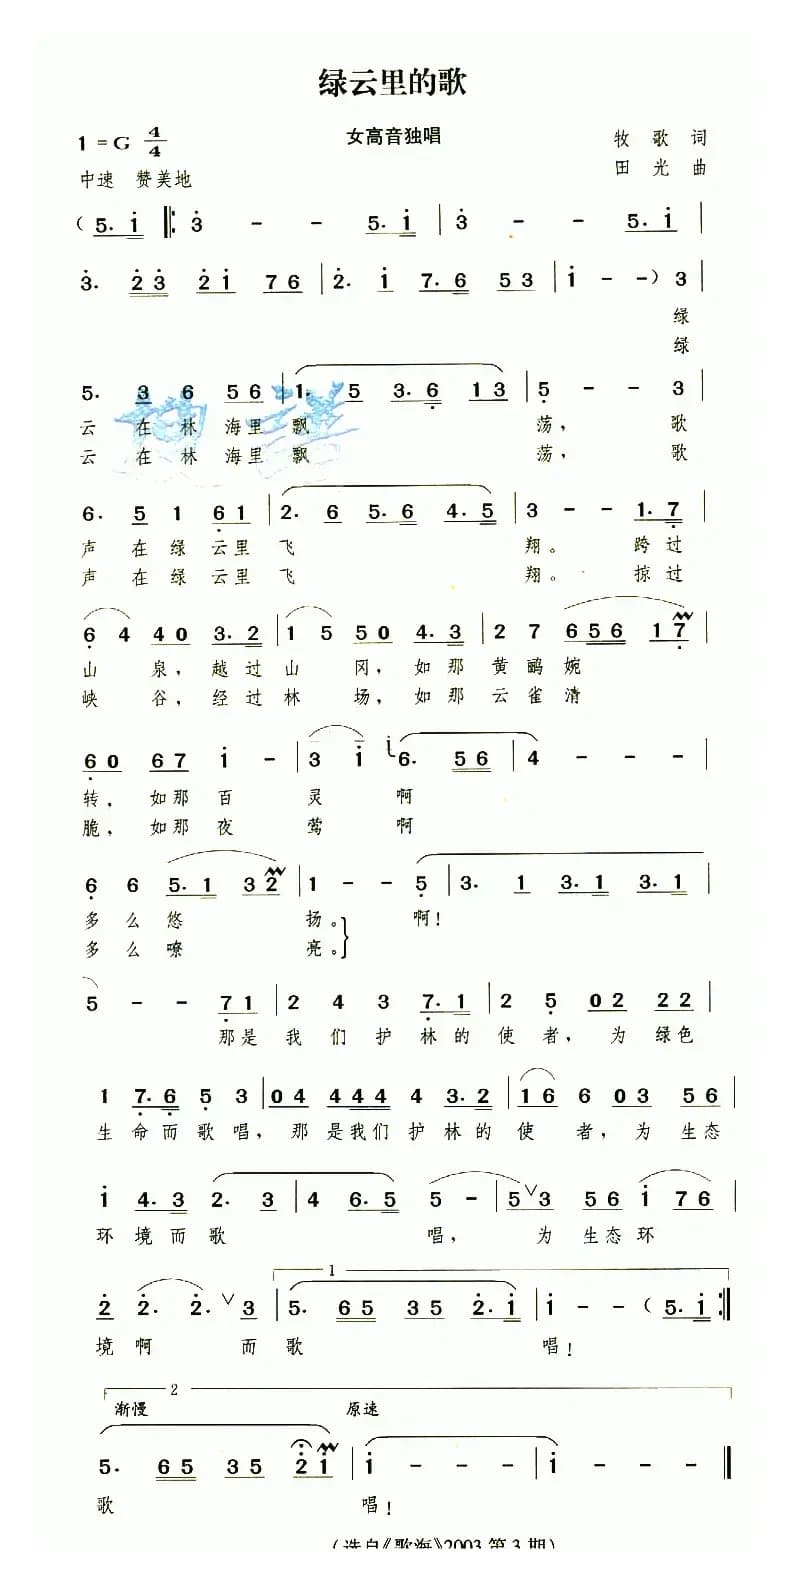 绿云里的歌
女高音独唱
1 = G 4/4
牧 歌 词
中速 赞美地
田 光 曲
(5. i ‖: 3 - - 5. i | 3 - - 5. i |
3. 2 3 2 i 7 6 | 2. i 7. 6 5 3 | i - -) 3 |
绿
绿
5. 3 6 5 6 | 1. 5 3. 6 1 3 | 5 - - 3 |
云 在 林 海里 飘 荡, 歌
云 在 林 海里 飘 荡, 歌
6. 5 1 6 1 | 2. 6 5. 6 4. 5 | 3 - - 1. 7 |
声 在 绿 云里 飞 翔。 跨过
声 在 绿 云里 飞 翔。 掠过
6 4 4 0 3. 2 | 1 5 5 0 4. 3 | 2 7 6 5 6 1 7 |
山 泉, 越过 山 冈, 如那 黄鹂婉
峡 谷, 经过 林 场, 如那 云雀清
6 0 6 7 i - | 3 i i 6. 5 6 | 4 - - - |
转, 如那 百 灵 啊
脆, 如那 夜 莺 啊
6 6 5. 1 3 2 | 1 - - 5 | 3. 1 3. 1 3. 1 |
多 么 悠 扬。 啊!
多 么 嘹 亮。
5 - - 7 1 | 2 4 3 7. 1 | 2 5 0 2 2 2 |
那是 我 们 护 林的 使 者, 为 绿色
1 7. 6 5 3 | 0 4 4 4 4 4 3. 2 | 1 6 6 0 3 5 6 |
生 命而歌唱, 那 是我们 护 林的 使 者, 为 生态
i 4. 3 2. 3 | 4 6 6. 5 | 5 - 5 ∨ 3 5 6 i 7 6 |
环 境而歌 唱, 为 生态环
1
2 2. 2. ∨ 3 | 5. 6 5 3 5 2. i | i - - (5. i :‖
境 啊 而 歌 唱!
2
渐慢 原速
5. 6 5 3 5 2 i | i - - - | i - - - ‖
歌 唱!
(选自《歌海》2003 第 3 期)